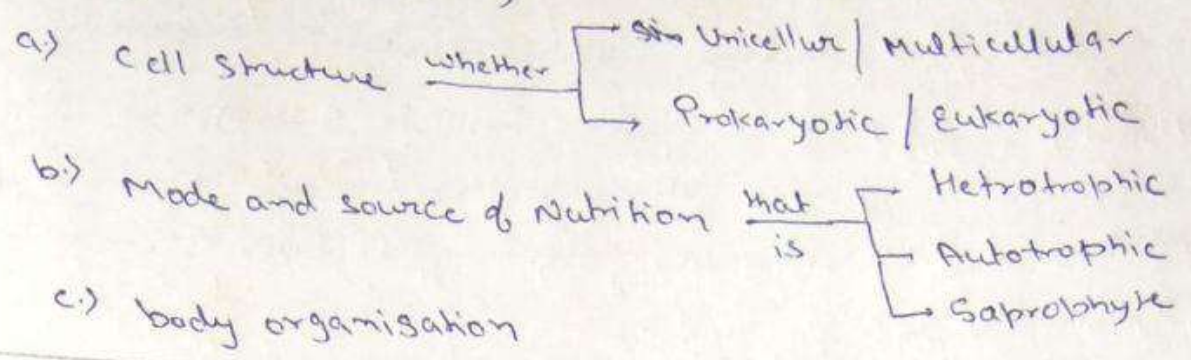 a.) Cell Structure whether Unicellur / Multicellular
Prokaryotic / Eukaryotic
b.) Mode and source of Nutrition that is Hetrotrophic
Autotrophic
Saprophyte
c.) body organisation